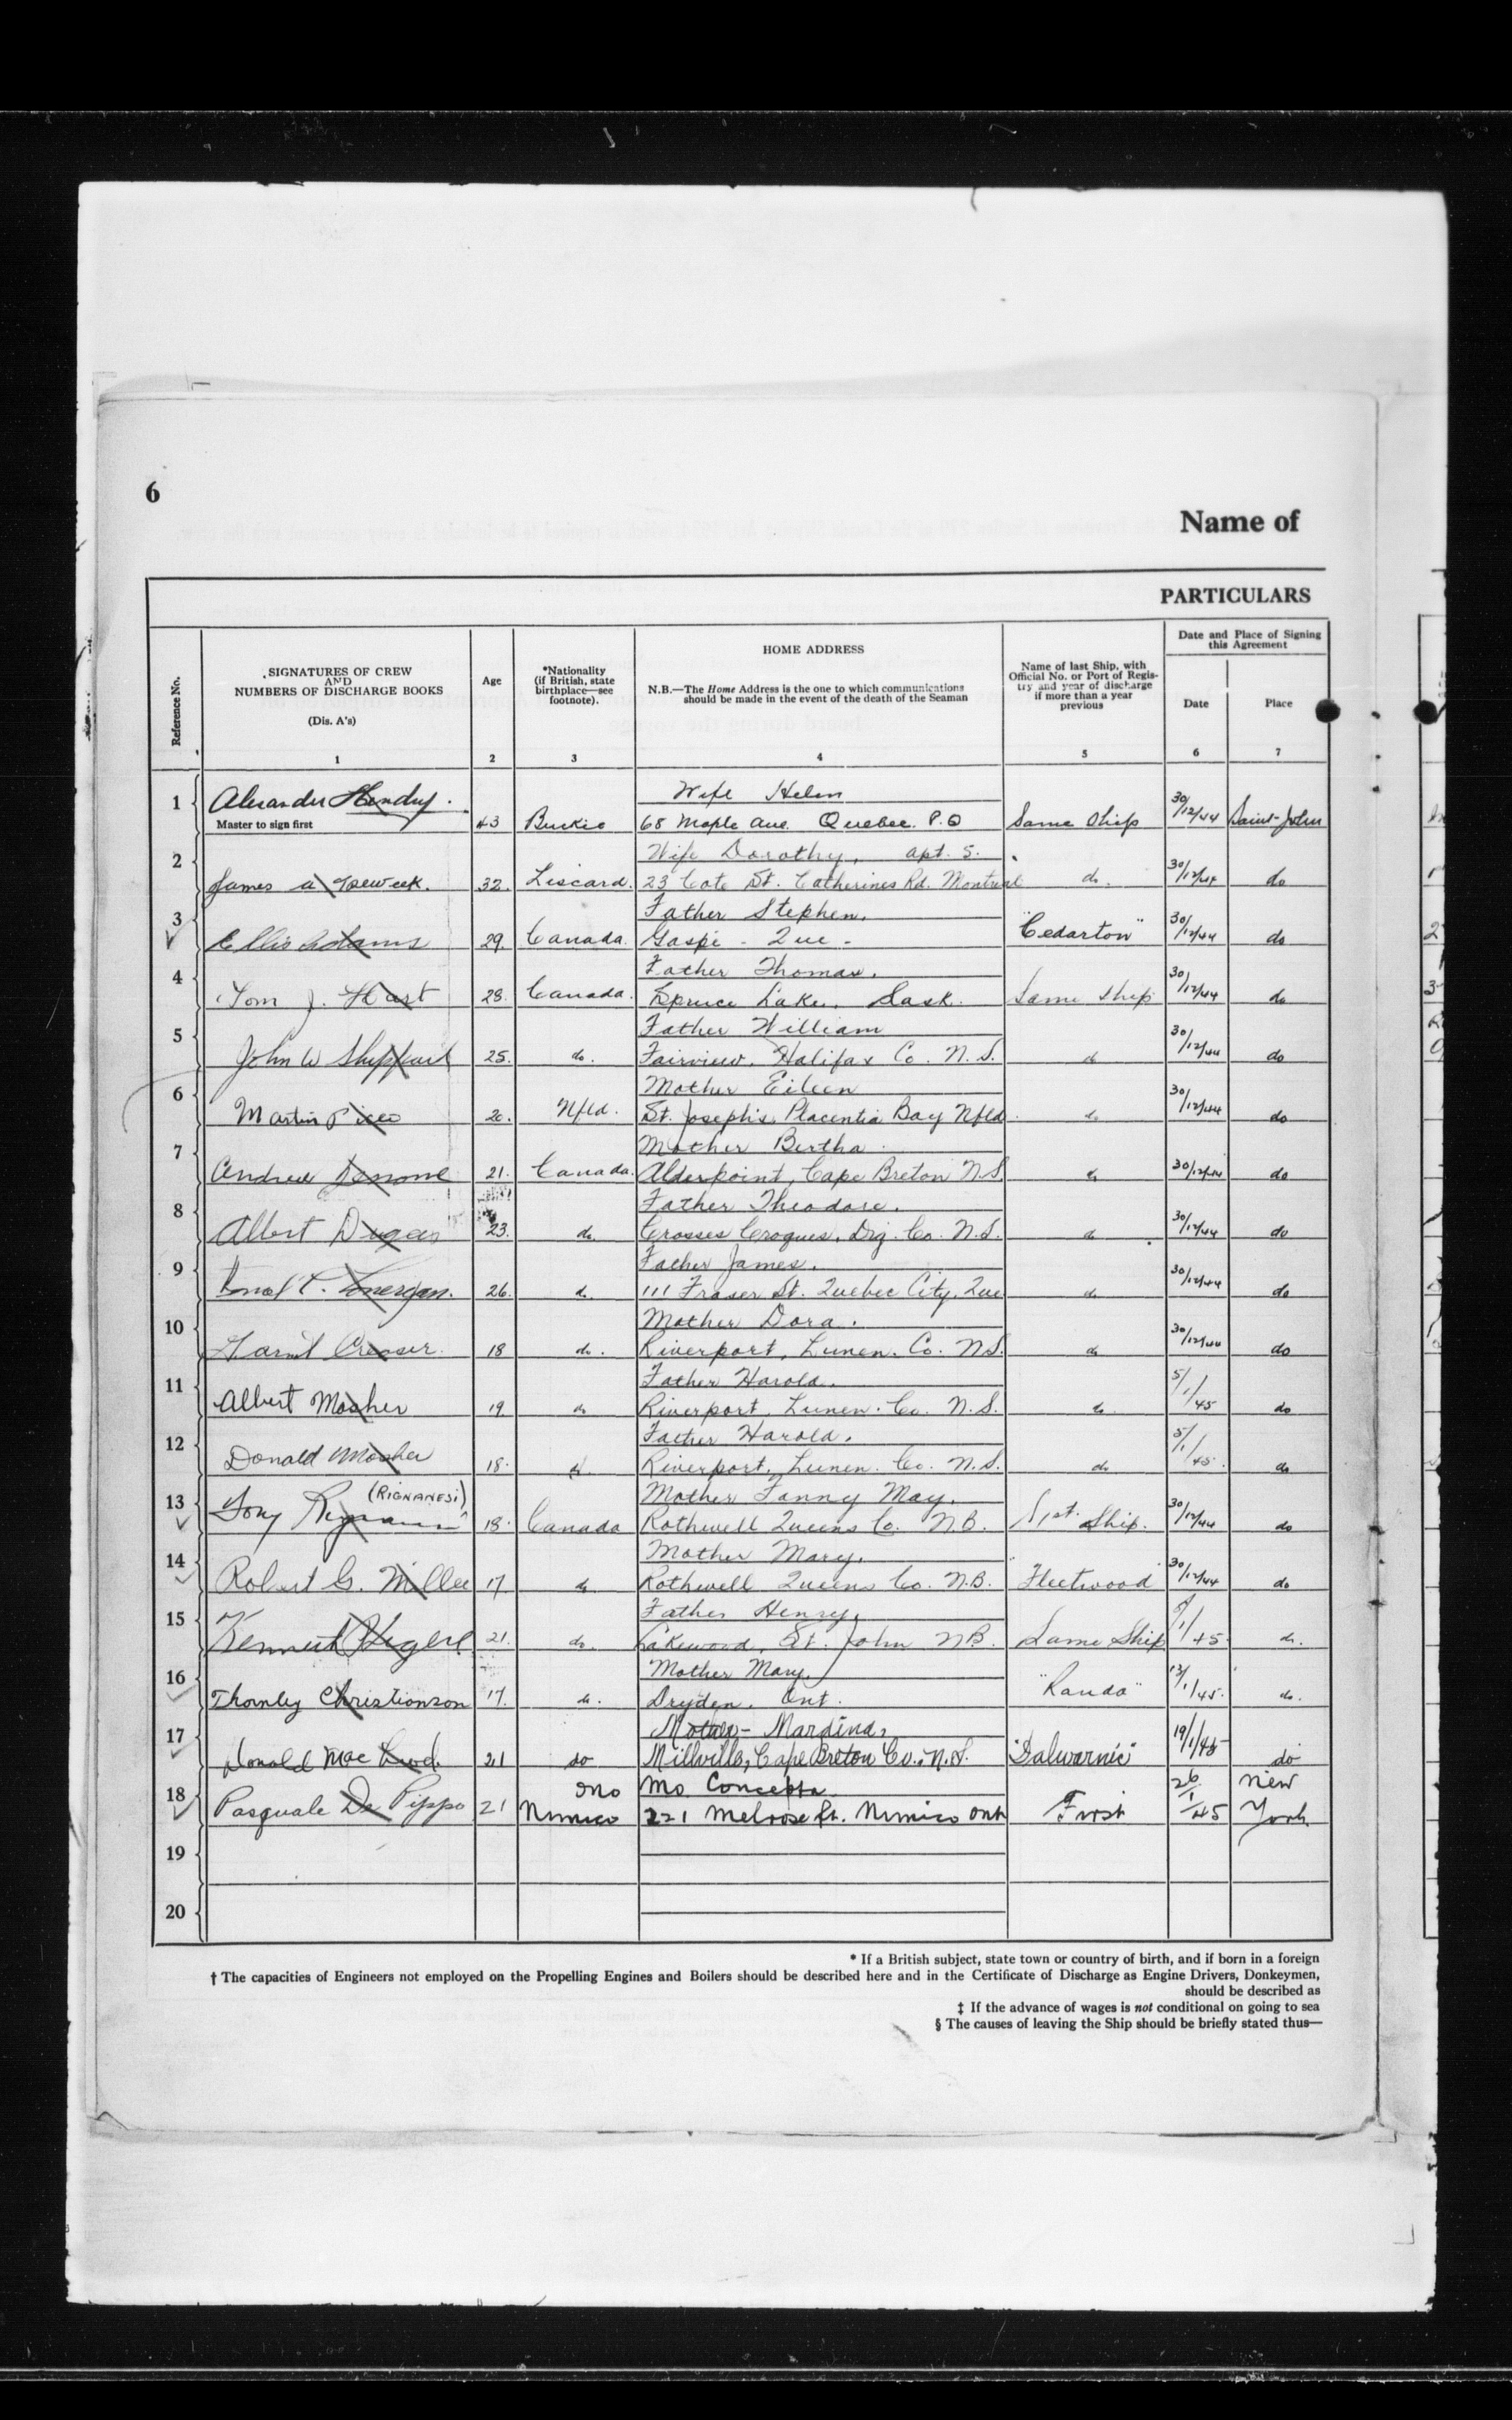 6
Name of
PARTICULARS
Reference No.
SIGNATURES OF CREW
AND
NUMBERS OF DISCHARGE BOOKS
(Dis. A's)
1
Age
2
*Nationality
(if British, state
birthplace—see
footnote).
3
HOME ADDRESS
N.B.—The Home Address is the one to which communications
should be made in the event of the death of the Seaman
4
Name of last Ship, with
Official No. or Port of Regis-
try and year of discharge
if more than a year
previous
5
Date and Place of Signing
this Agreement
Date
6
Place
7
1 Alexander Hendry. Wife Helen
Master to sign first 43 Buckie 68 Maple Ave. Quebec. P.Q Same Ship 30/12/44 Saint-John
2 Wife Dorothy, apt. 5.
James a 32. Liscard. 23 Cote St. Catherines Rd. Montreal do. 30/12/44 do
3 Father Stephen.
Ellis Adams 29. Canada. Gaspé - Que - "Cedarton" 30/12/44 do
4 Father Thomas.
Tom J. Hart 28. Canada. Spruce Lake, Sask. Same Ship 30/12/44 do
5 Father William
John W Sheppard 25. do. Fairview. Halifax Co. N.S. do 30/12/44 do
6 Mother Eileen
Martin Pico 20. Nfld. St. Joseph's, Placentia Bay Nfld. do 30/12/44 do
7 Mother Bertha
Andrew 21. Canada. Alderpoint, Cape Breton N.S. do 30/12/44 do
8 Father Theodore.
Albert Dugas 23. do. Crosses Croques, Dig. Co. N.S. do 30/12/44 do
9 Father James.
Lonergan. 26. do. 111 Fraser St. Quebec City, Que do 30/12/44 do
10 Mother Dora.
Creaser 18 do. Riverport, Lunen. Co. N.S. do 30/12/44 do
11 Father Harold.
Albert Mosher 19 do Riverport, Lunen. Co. N.S. do. 5/1/45 do
12 Father Harold.
Donald Mosher 18. do. Riverport, Lunen. Co. N.S. do 5/1/45. do
13 (RIGNANESI) Mother Fanny May.
Tony Rignanesi 18. Canada Rothwell Queens Co. N.B. 1st. Ship. 30/12/44 do
14 Mother Mary.
Robert G. Miller 17 do Rothwell Queens Co. N.B. Fleetwood 30/12/44 do
15 Father Henry.
Kenneth 21. do. Lakewood, St. John N.B. Same Ship 5/1/45 do.
16 Mother Mary.
Thornley Christianson 17. do. Dryden. Ont. "Rando" 13/1/45. do.
17 Mother - Mardina,
Donald Mac Leod. 21 do Millville, Cape Breton Co., N.S. "Dalwarnic" 19/1/45 do
18 Mo. Concetta
Pasquale De Pippo 21 Mimico 221 Melrose St. Mimico Ont First 26/1/45 New York
19
20
* If a British subject, state town or country of birth, and if born in a foreign
† The capacities of Engineers not employed on the Propelling Engines and Boilers should be described here and in the Certificate of Discharge as Engine Drivers, Donkeymen,
should be described as
‡ If the advance of wages is not conditional on going to sea
§ The causes of leaving the Ship should be briefly stated thus—